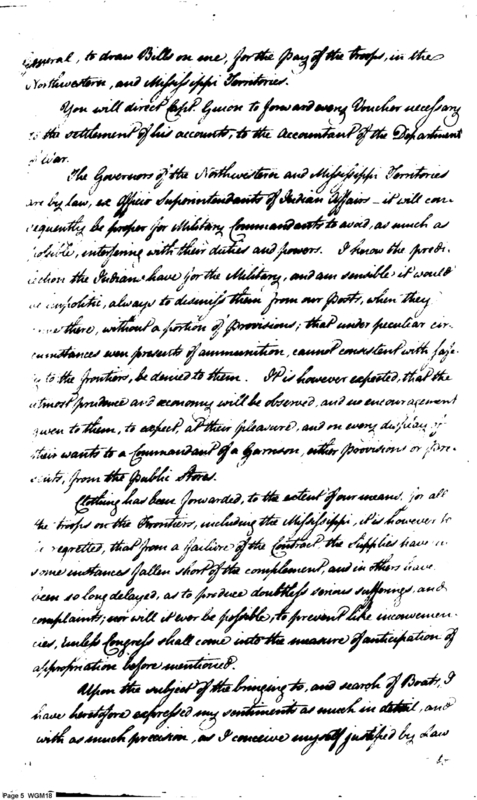 General, to draw Bills on me, for the Pay of the troops, in the
Northwestern, and Mississippi Territories.
You will direct Capt. Guion to forward every Voucher necessary
to the settlement of his accounts, to the Accountant of the Department
of War.
The Governors of the Northwestern and Mississippi Territories
are by law, ex Officio Superintendants of Indian Affairs - it will con-
sequently be proper for Military Commandants to avoid, as much as
possible, interfering with their duties and powers. I know the predi-
lection the Indians have for the Military, and am sensible it would
be impolitic, always to dismiss them from our Posts, when they
come there, without a portion of Provisions; that under peculiar cir-
cumstances even presents of ammunition, cannot consistent with safe-
ty to the frontiers, be denied to them. It is however expected, that the
utmost prudence and economy will be observed, and no encouragement
given to them, to expect, at their pleasure, and on every display of
their wants to a Commandant of a Garrison, either Provisions or pre-
sents, from the Public Stores.
Clothing has been forwarded, to the extent of our means, for all
the troops on the Frontiers, including the Mississippi, it is however to
be regretted, that from a failure of the Contract, the Supplies have in
some instances fallen short of the complement, and in others have
been so long delayed, as to produce doubtless serious sufferings, and
complaints; nor will it ever be possible, to prevent like inconvenien-
cies, unless Congress shall come into the measure of anticipation of
appropriation before mentioned.
Upon the subject of the bringing to, and search of Boats, I
have heretofore expressed my sentiments as much in detail, and
with as much precision, as I conceive myself justified by Law
Page 5 WGM18